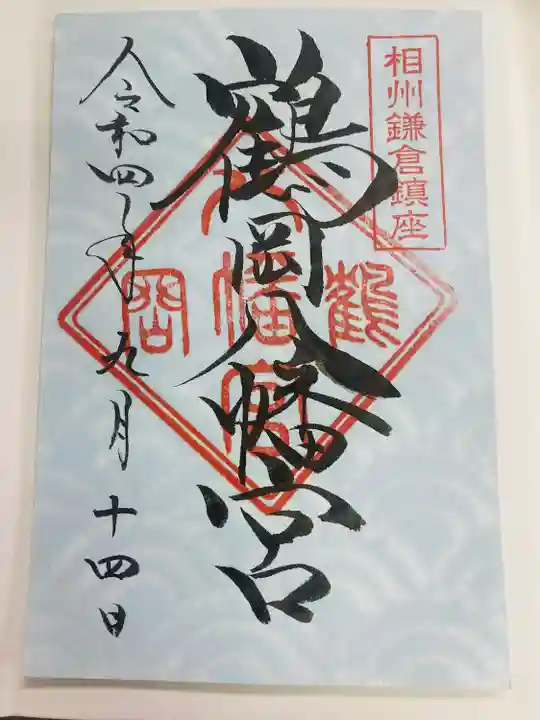 相州鎌倉鎮座
鶴岡八幡宮
鶴
八幡宮
岡
令和四年九月十四日